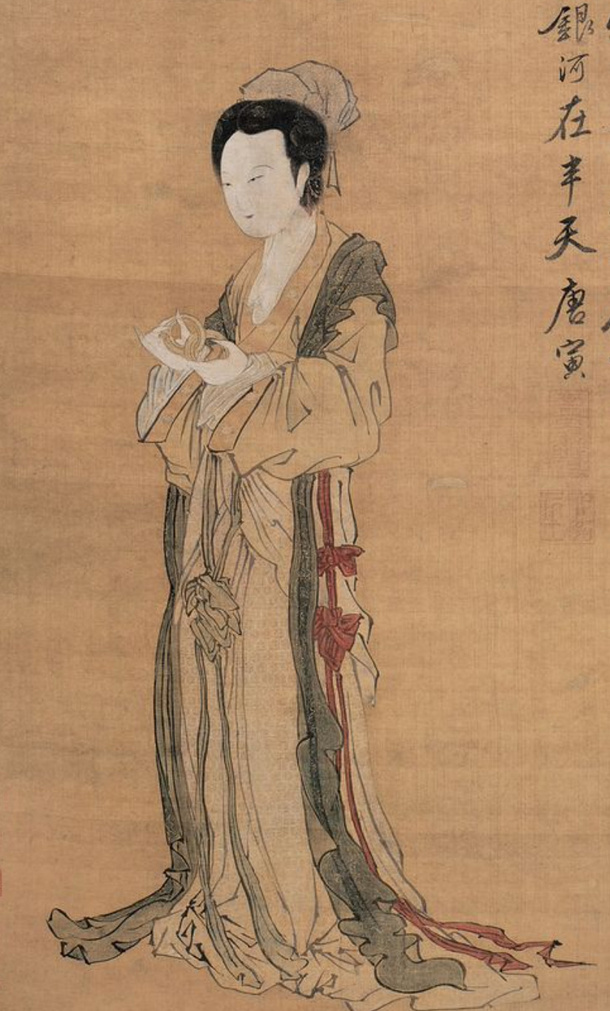 銀河在半天唐寅